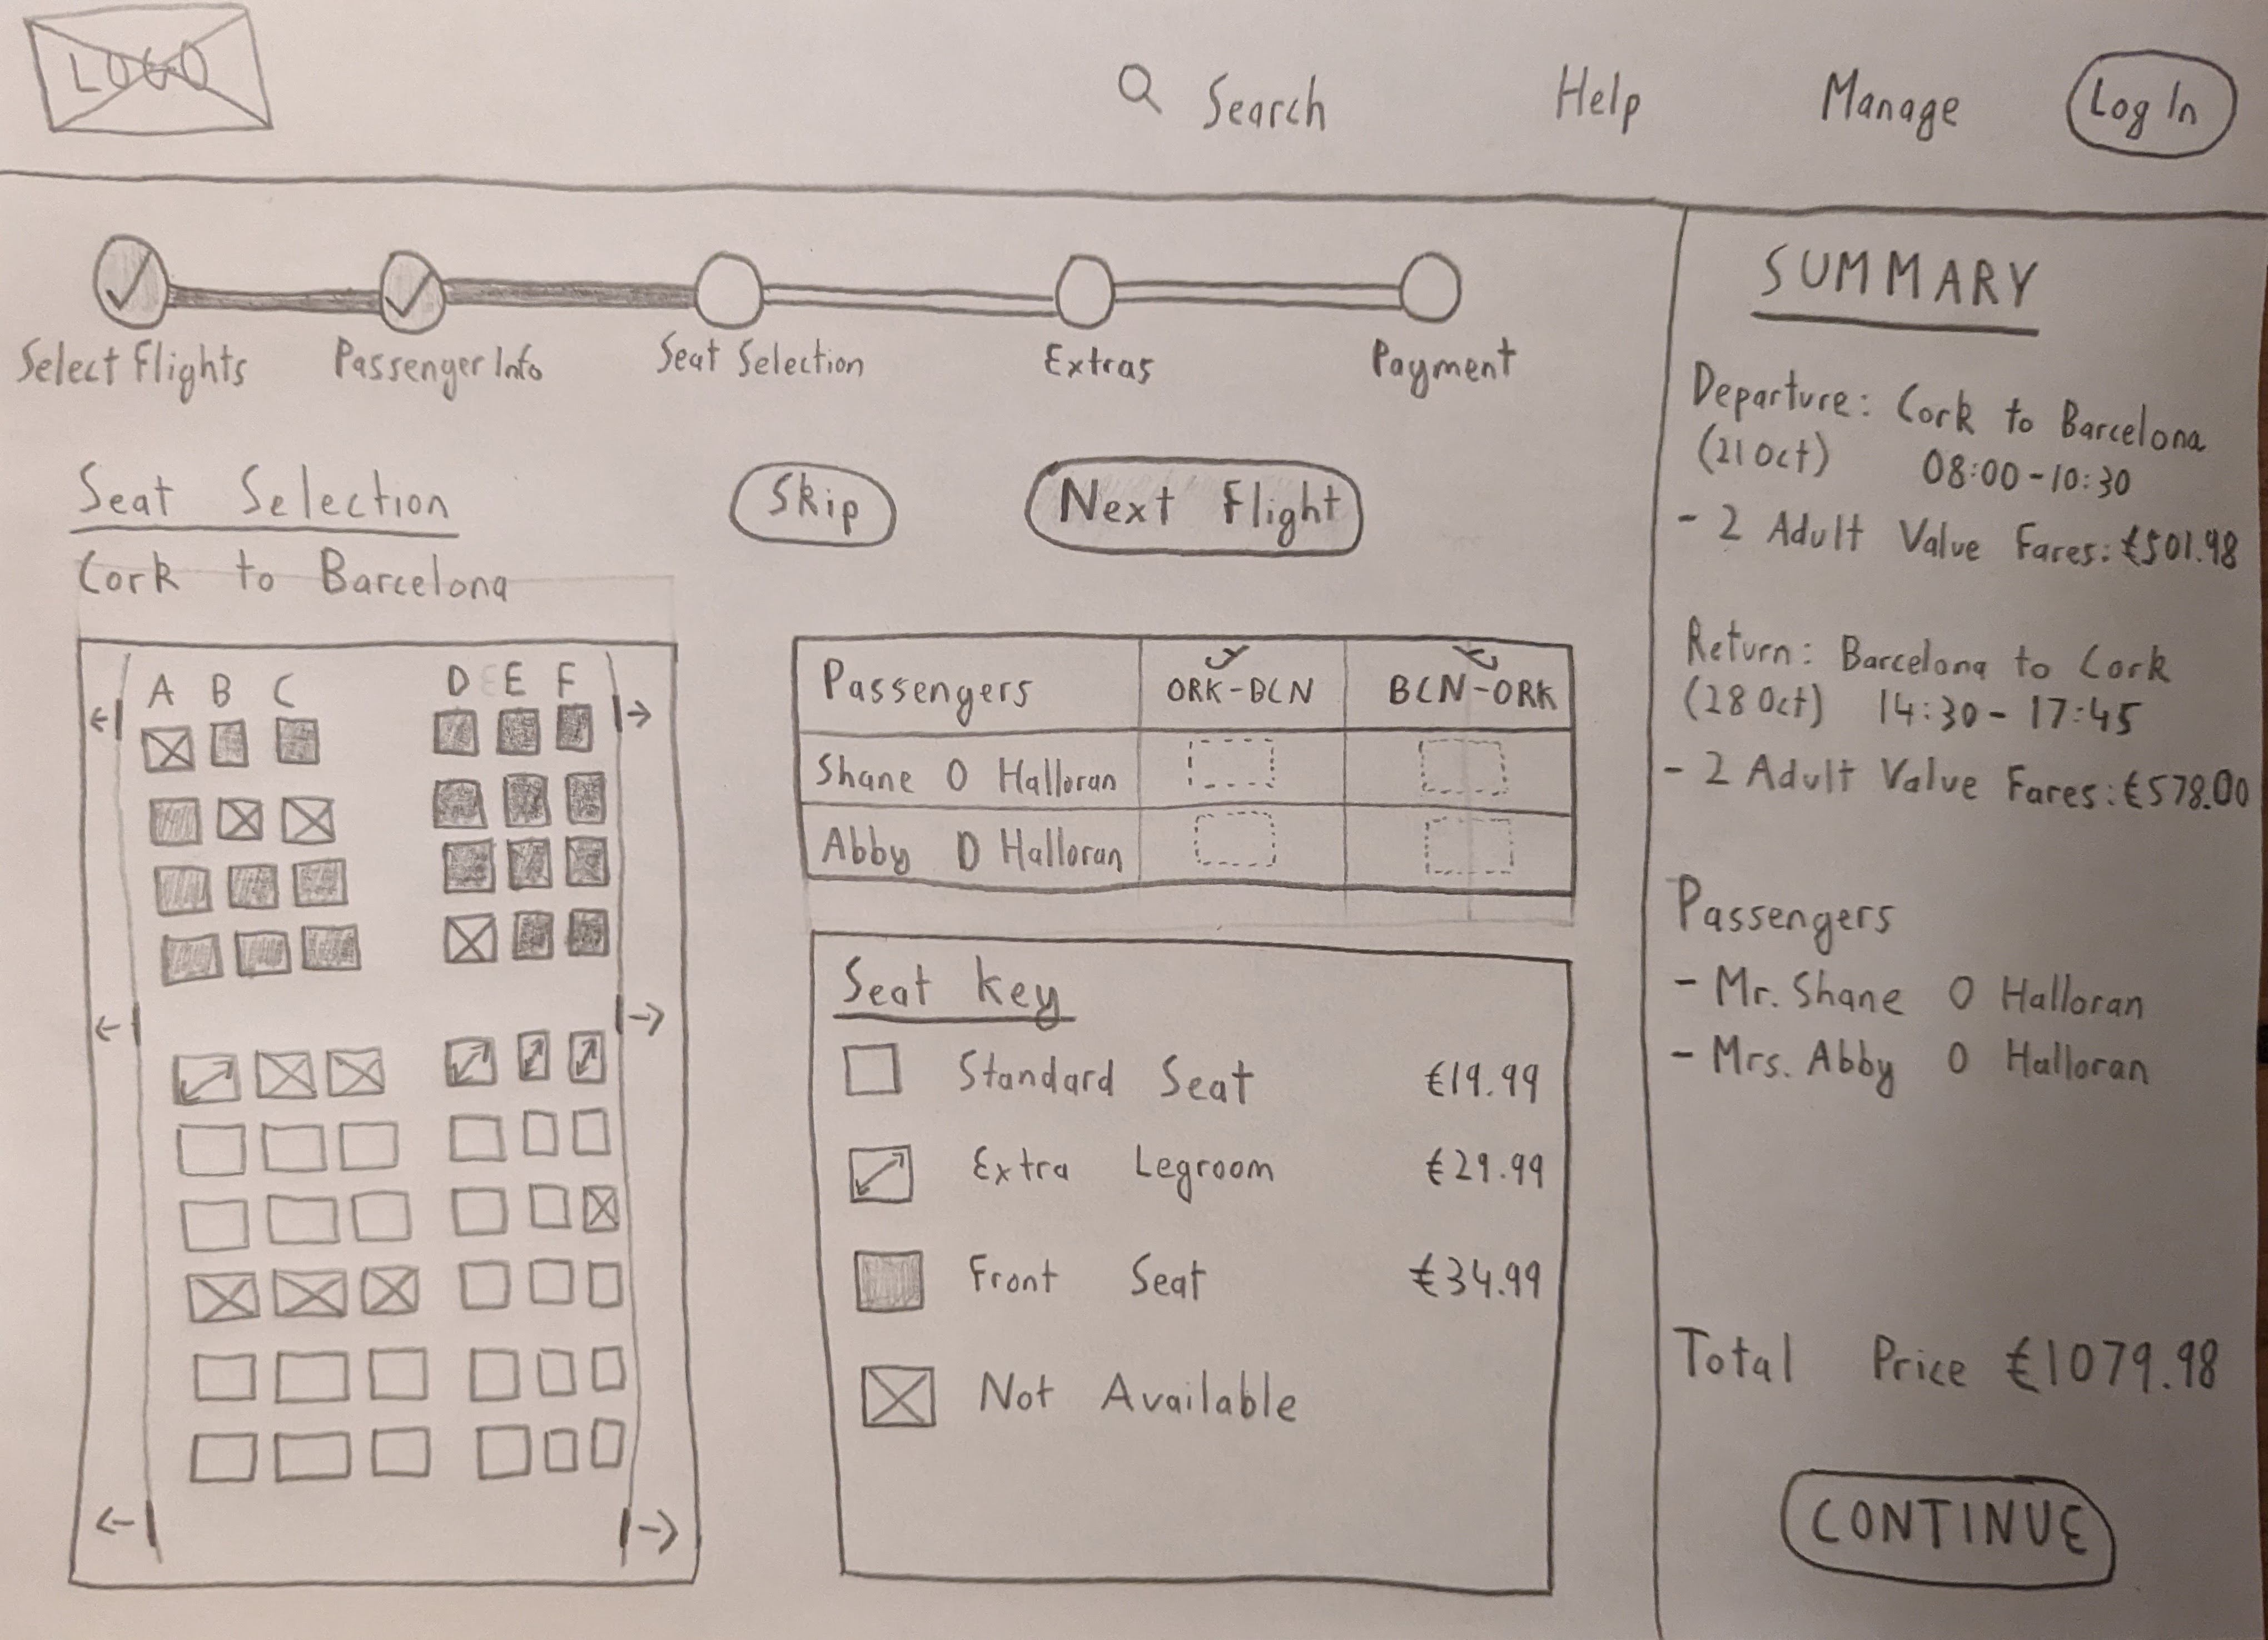 LOGO
Search
Help
Manage
Log In
Select Flights
Passenger Info
Seat Selection
Extras
Payment
Seat Selection
Skip
Next Flight
Cork to Barcelona
A B C D E F
Passengers ORK-BCN BCN-ORK
Shane O Halloran
Abby O Halloran
Seat Key
Standard Seat €19.99
Extra Legroom €29.99
Front Seat €34.99
Not Available
SUMMARY
Departure: Cork to Barcelona
(21 Oct) 08:00-10:30
- 2 Adult Value Fares: €501.98
Return: Barcelona to Cork
(28 Oct) 14:30-17:45
- 2 Adult Value Fares: €578.00
Passengers
- Mr. Shane O Halloran
- Mrs. Abby O Halloran
Total Price €1079.98
CONTINUE